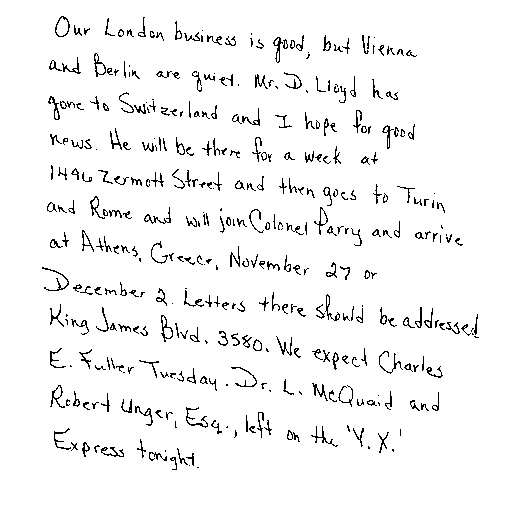 Our London business is good, but Vienna
and Berlin are quiet. Mr. D. Lloyd has
gone to Switzerland and I hope for good
news. He will be there for a week at
1496 Zermott Street and then goes to Turin
and Rome and will join Colonel Parry and arrive
at Athens, Greece, November 27 or
December 2. Letters there should be addressed
King James Blvd. 3580. We expect Charles
E. Fuller Tuesday. Dr. L. McQuaid and
Robert Unger, Esq., left on the 'Y. X.'
Express tonight.